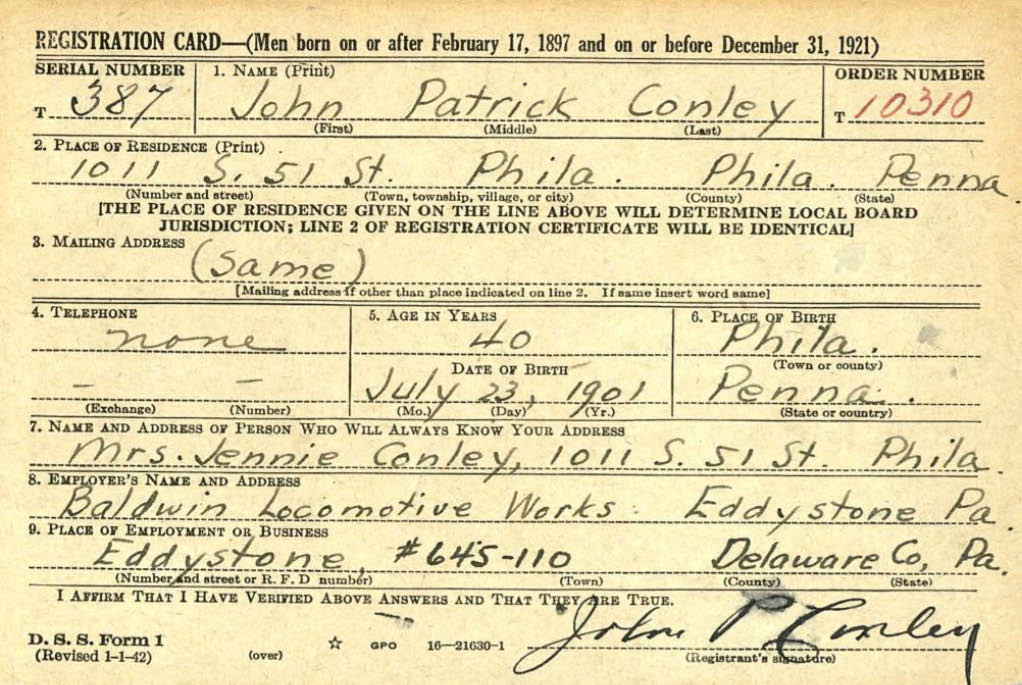 REGISTRATION CARD—(Men born on or after February 17, 1897 and on or before December 31, 1921)
SERIAL NUMBER 1. NAME (Print) ORDER NUMBER
T 387 John Patrick Conley T 10310
(First) (Middle) (Last)
2. PLACE OF RESIDENCE (Print)
1011 S. 51 St. Phila. Phila. Penna
(Number and street) (Town, township, village, or city) (County) (State)
[THE PLACE OF RESIDENCE GIVEN ON THE LINE ABOVE WILL DETERMINE LOCAL BOARD
JURISDICTION; LINE 2 OF REGISTRATION CERTIFICATE WILL BE IDENTICAL]
3. MAILING ADDRESS
(same)
[Mailing address if other than place indicated on line 2. If same insert word same]
4. TELEPHONE 5. AGE IN YEARS 6. PLACE OF BIRTH
none 40 Phila.
DATE OF BIRTH (Town or county)
— — July 23, 1901 Penna.
(Exchange) (Number) (Mo.) (Day) (Yr.) (State or country)
7. NAME AND ADDRESS OF PERSON WHO WILL ALWAYS KNOW YOUR ADDRESS
Mrs. Jennie Conley, 1011 S. 51 St. Phila.
8. EMPLOYER'S NAME AND ADDRESS
Baldwin Locomotive Works Eddystone Pa.
9. PLACE OF EMPLOYMENT OR BUSINESS
Eddystone, #645-110 Delaware Co, Pa.
(Number and street or R. F. D number) (Town) (County) (State)
I AFFIRM THAT I HAVE VERIFIED ABOVE ANSWERS AND THAT THEY ARE TRUE.
John P Conley
D. S. S. Form 1
(Revised 1-1-42) (over) ☆ GPO 16—21630-1 (Registrant's signature)